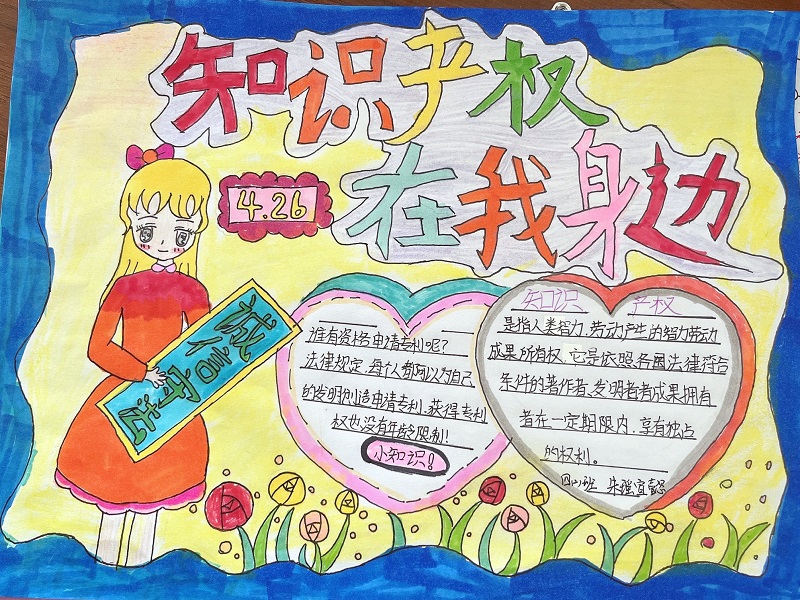 知识产权
在我身边
4.26
诚信守法
谁有资格申请专利呢?
法律规定,每个人都可以为自己
的发明创造申请专利,获得专利
权也没有年龄限制!
小知识!
知识 产权
是指人类智力劳动产生的智力劳动
成果所有权.它是依照各国法律符合
条件的著作者、发明者或成果拥有
者在一定期限内,享有独占
的权利。